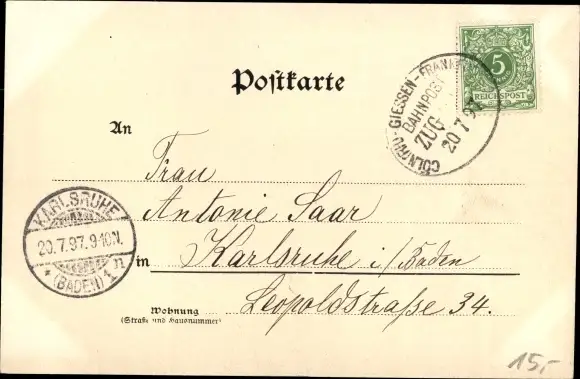 Postkarte
5
REICHSPOST
GIESSEN-FRANKF
BAHNPOST
ZUG
20 7 97
An
Frau
Antonie Saar
in Karlsruhe i/Baden
Leopoldstraße 34.
Wohnung
(Straße und Hausnummer)
KARLSRUHE
20.7.97.9-10N.
* (BADEN) 1 n
15,-